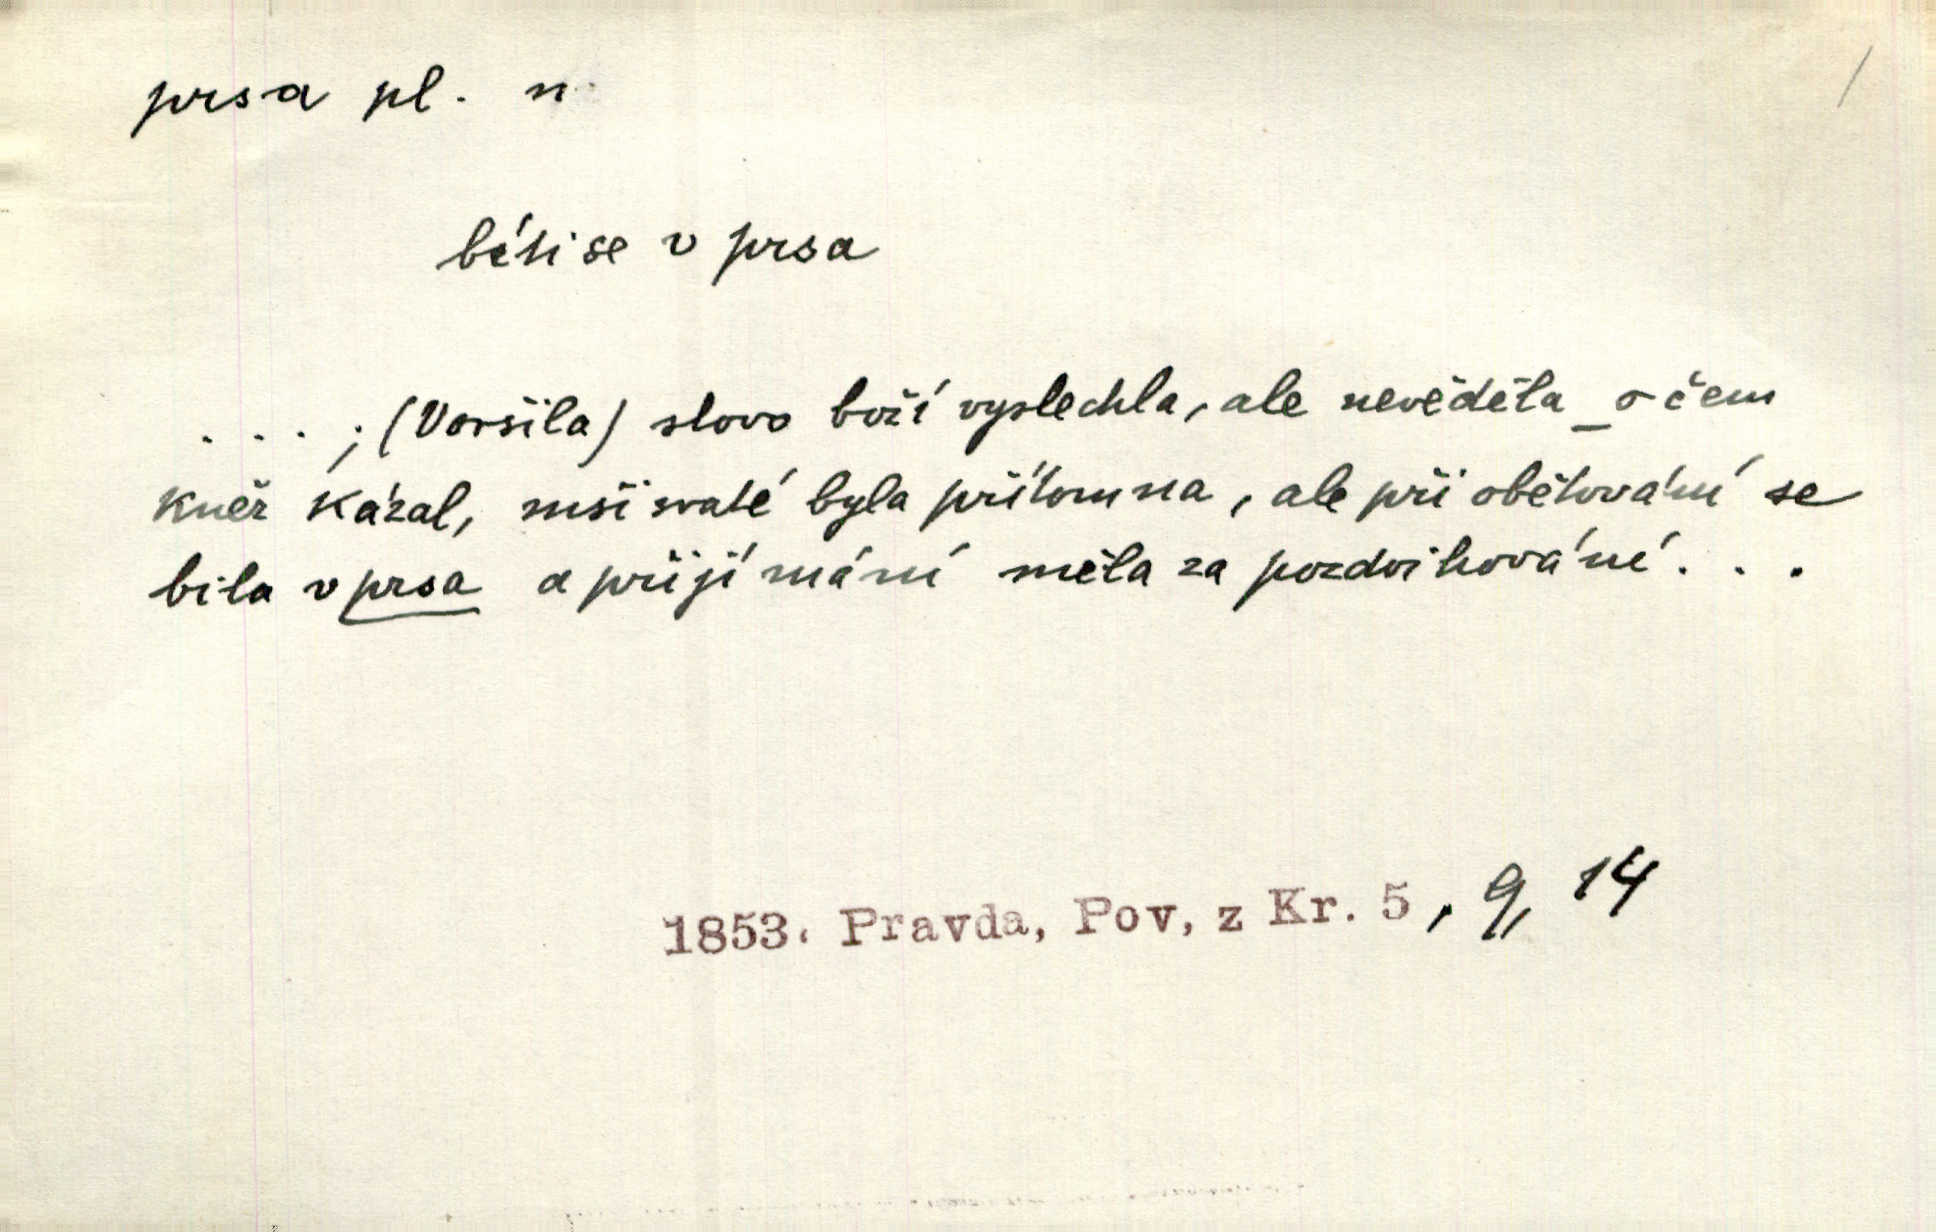 prsa pl. n.
bíti se v prsa
. . . ; (Voršila) slovo boží vyslechla, ale nevěděla _ o čem
kněz kázal, mši svaté byla přítomna, ale při obětování se
bila v prsa a přijímání měla za pozdvihování . . .
1853. Pravda, Pov, z Kr. 5, 9, 14